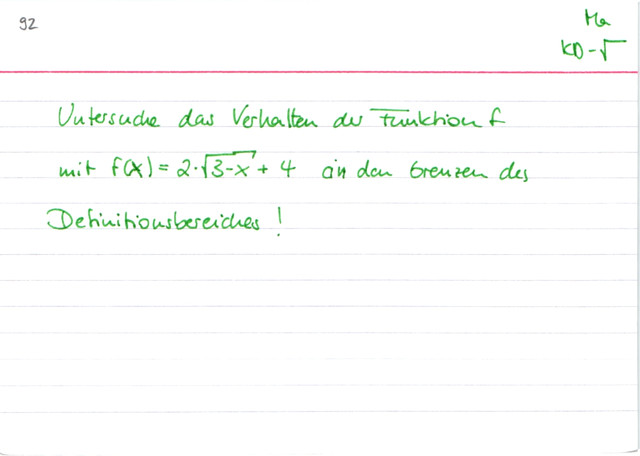 92
Ma
KD-√
Untersuche das Verhalten der Funktion f
mit f(x) = 2·√3-x + 4 an den Grenzen des
Definitionsbereiches!